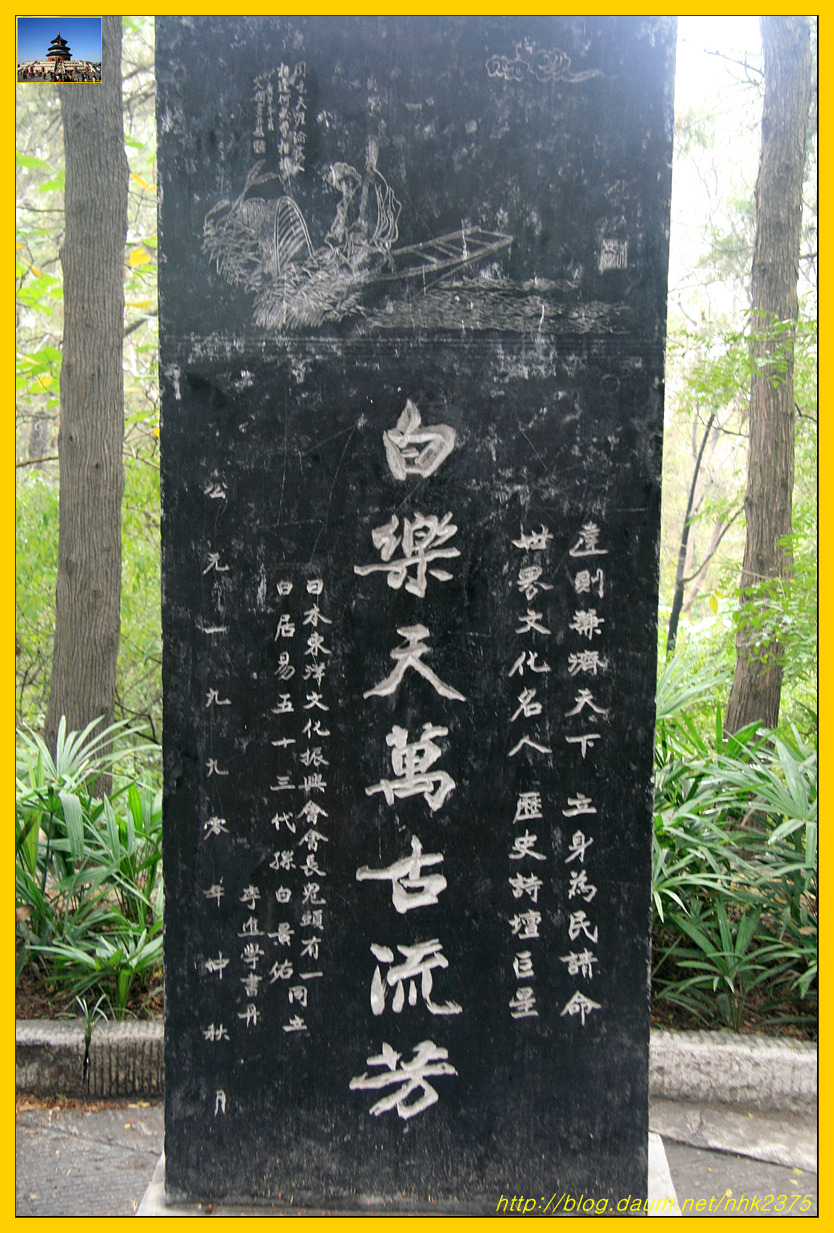 同是天涯淪落人
相逢何必曾相識
達則兼濟天下 立身為民請命
世界文化名人 歷史詩壇巨星
白樂天萬古流芳
日本東洋文化振興會會長兒頭有一同立
白居易五十三代孫白景佑
李進學書丹
公元一九九零年仲秋月
http://blog.daum.net/nhk2375